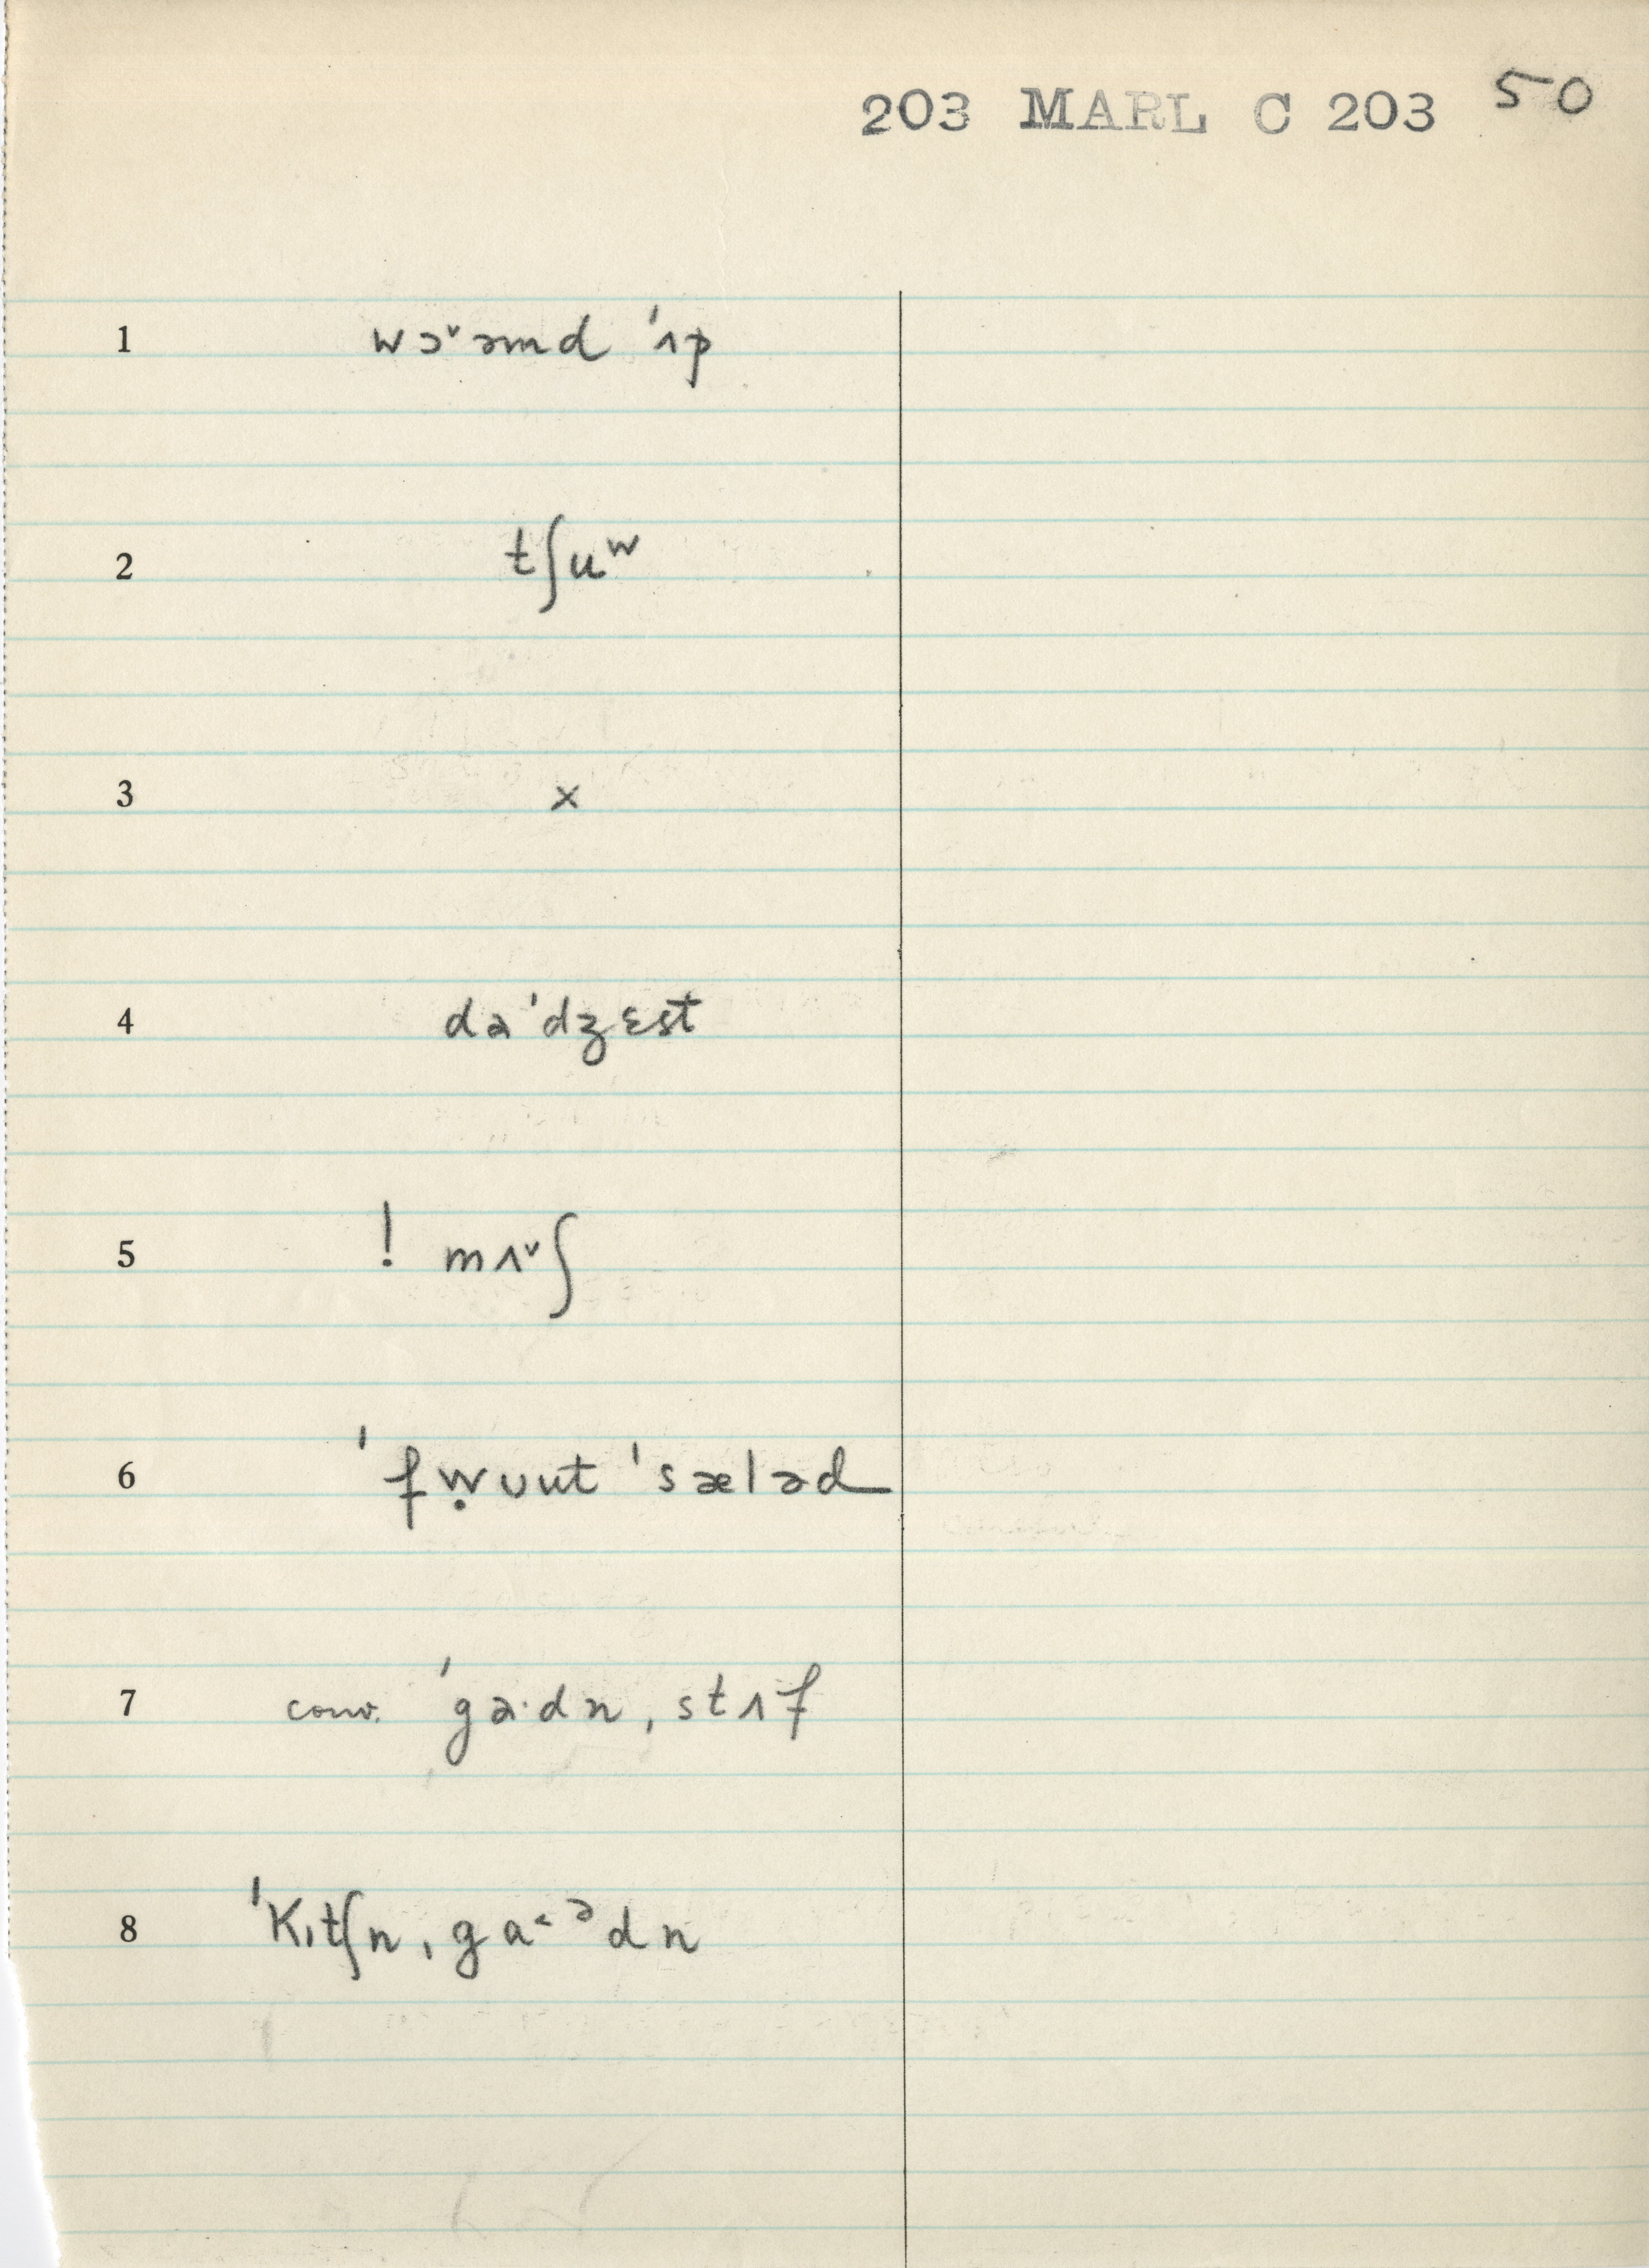 203 MARL C 203 50
1 wɔ˅əmd ˈʌp
2 tʃuʷ
3 x
4 dəˈdʒɛst
5 ! mʌ˅ʃ
6 ˈfẉuut ˈsæləd
7 conv. ˈgɜ·dn̩ stʌf
8 ˈKɪtʃn ˌga˂ᵊdn